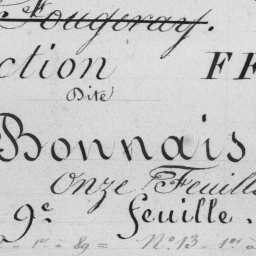 Fougeray.
ction FF
Dite
Bonnais
Onze Feuill
9e feuille.
N° 13